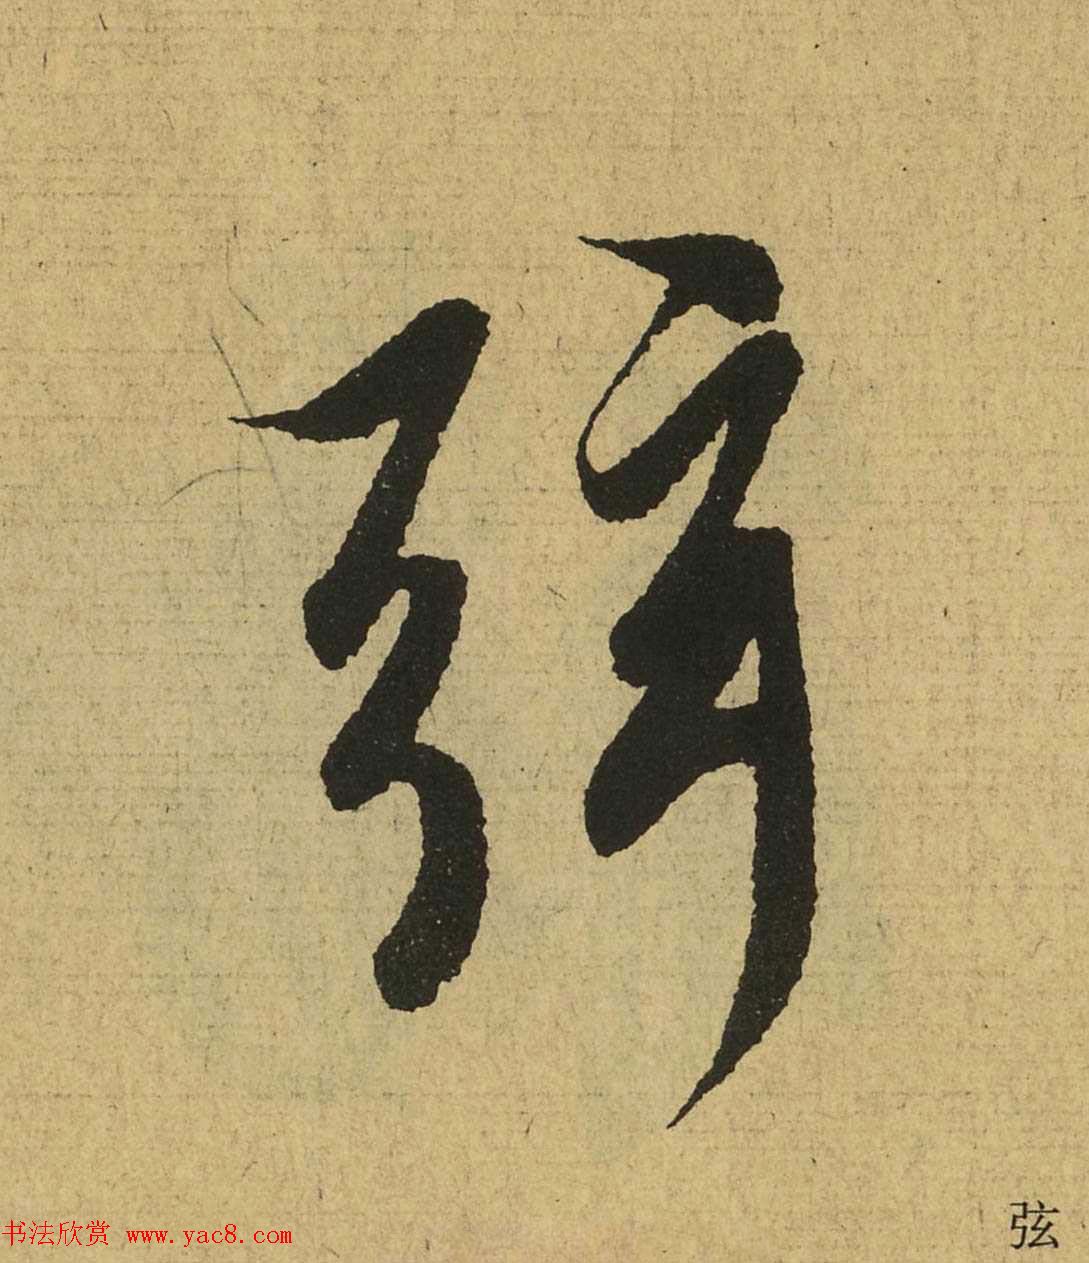 弦
弦
书法欣赏 www.yac8.com